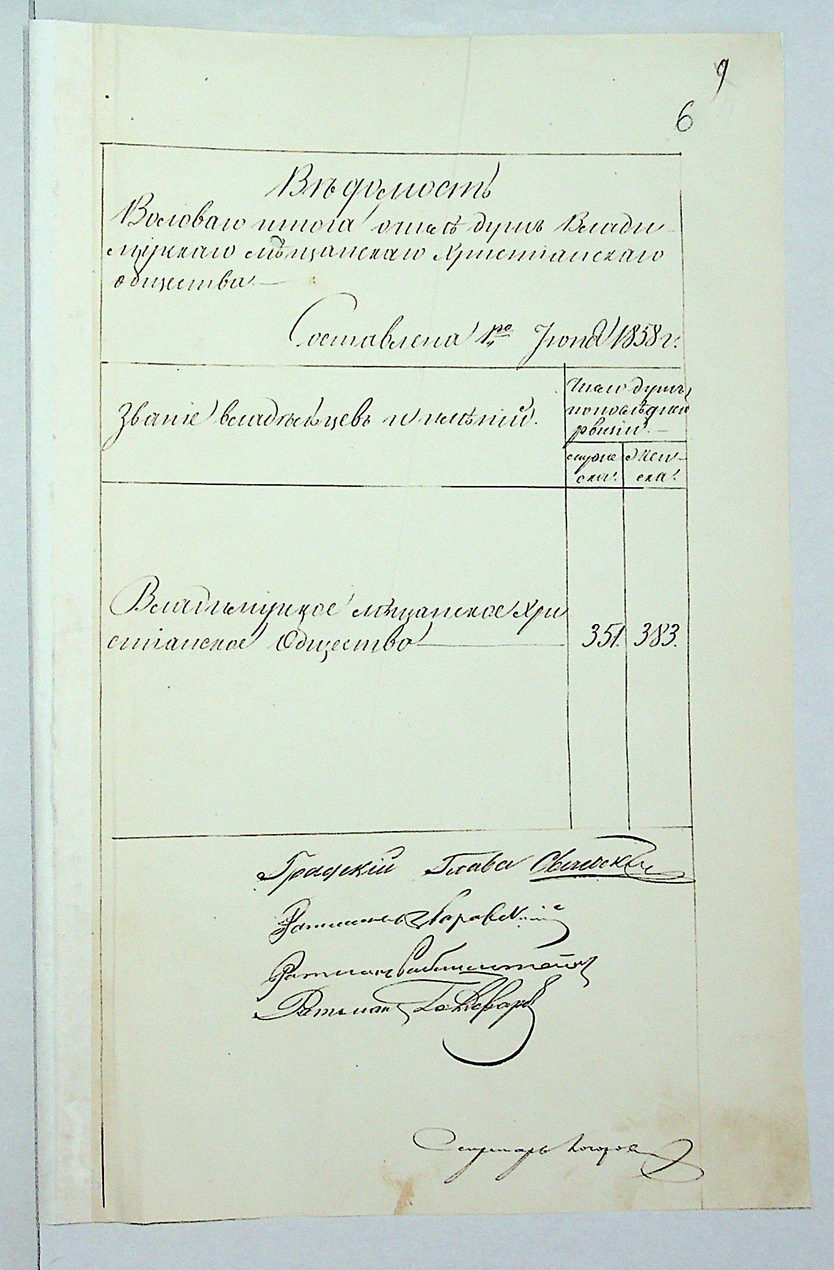 9
6
Вѣдомость
Воловаго итога о числѣ душъ Влади-
мірскаго мѣщанскаго Христіанскаго
общества.—
Составлена 1го Іюня 1858 г.
Званіе владѣльцевъ и имѣній.
Число душъ
по послѣдней
ревизіи.—
мужес-
ска.
Жен-
ска.
мѣщанское Хри
стіанское Общество
351.
383.
Градскій Глава
Ратманъ
Ратманъ
Ратманъ
Секретарь